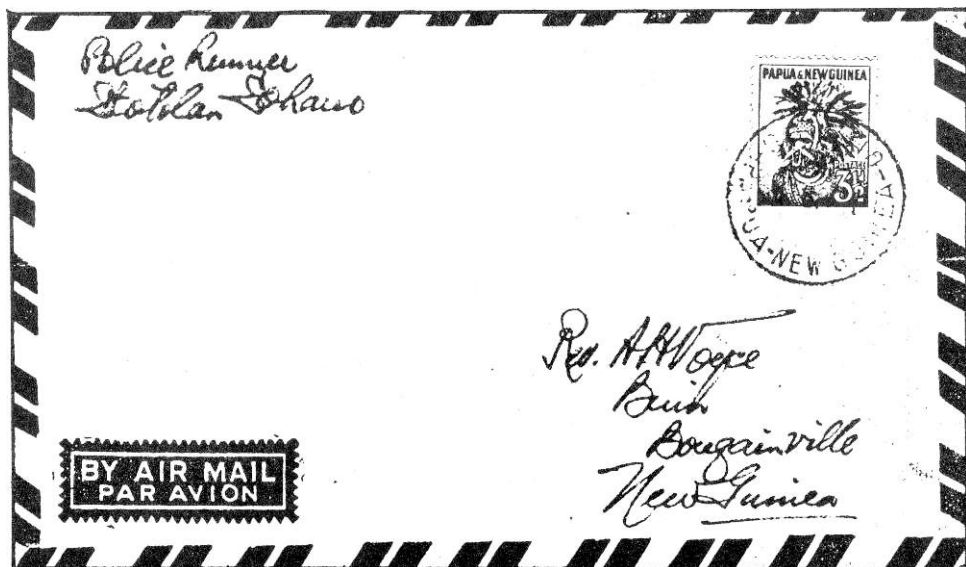 Police Runner
Sohano
PAPUA & NEW GUINEA
3½
PAPUA-NEW GUINEA
Rev. AHVoyce
Buin
Bougainville
New Guinea
BY AIR MAIL
PAR AVION